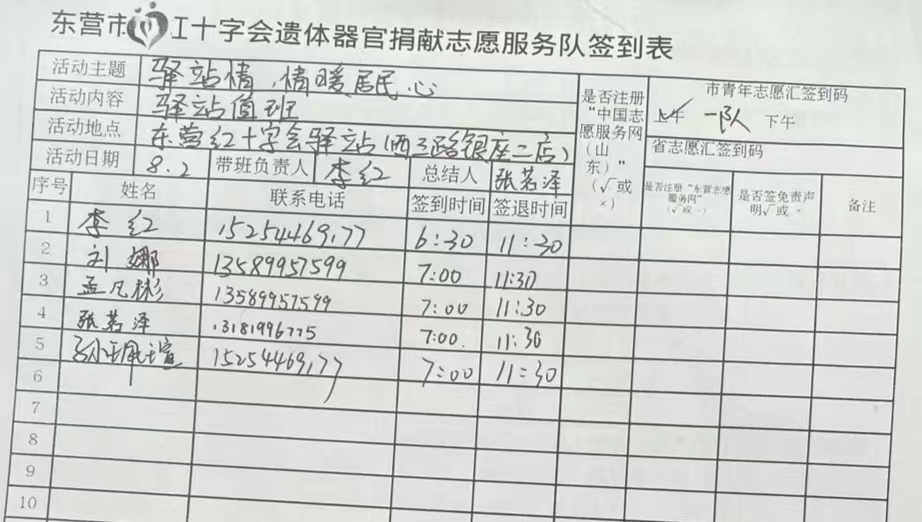 东营市红十字会遗体器官捐献志愿服务队签到表
活动主题 驿站情,情暖居民心
活动内容 驿站值班
活动地点 东营红十字会驿站(西三路银座二店)
活动日期 8.2 带班负责人 李红 总结人 张茗泽
是否注册“中国志愿服务网(山东)”(√或×)
市青年志愿汇签到码
上午 一队 下午
省志愿汇签到码
序号 姓名 联系电话 签到时间 签退时间 是否注册“东营志愿服务网”(√或×) 是否签免责声明√或× 备注
1 李红 15254469177 6:30 11:30
2 刘娜 13589957599 7:00 11:30
3 孟凡彬 13589957599 7:00 11:30
4 张茗泽 13181996775 7:00. 11:30
5 15254469177 7:00 11:30
6
7
8
9
10